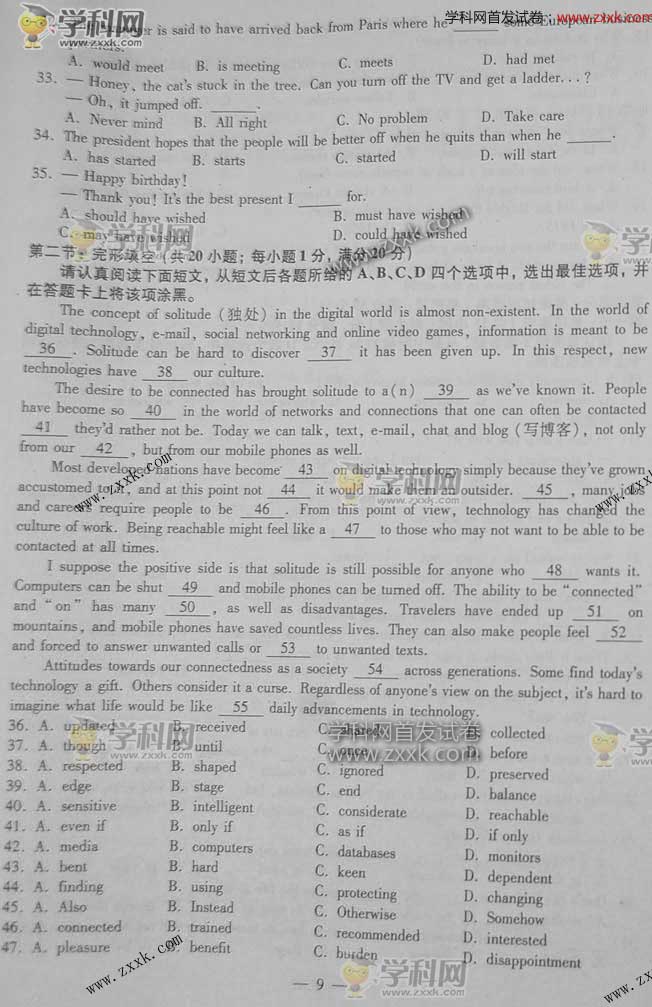 学科网首发试卷 www.zxxk.com
学科网
er is said to have arrived back from Paris where he ______ some European business
A. would meet B. is meeting C. meets D. had met
33. — Honey, the cat's stuck in the tree. Can you turn off the TV and get a ladder...?
— Oh, it jumped off. ______.
A. Never mind B. All right C. No problem D. Take care
34. The president hopes that the people will be better off when he quits than when he ______.
A. has started B. starts C. started D. will start
35. — Happy birthday!
— Thank you! It's the best present I ______ for.
A. should have wished B. must have wished
C. may have wished D. could have wished
第二节:完形填空(共20小题;每小题1分,满分20分)
请认真阅读下面短文,从短文后各题所给的A、B、C、D四个选项中,选出最佳选项,并
在答题卡上将该项涂黑。
The concept of solitude (独处) in the digital world is almost non-existent. In the world of
digital technology, e-mail, social networking and online video games, information is meant to be
36 . Solitude can be hard to discover 37 it has been given up. In this respect, new
technologies have 38 our culture.
The desire to be connected has brought solitude to a(n) 39 as we've known it. People
have become so 40 in the world of networks and connections that one can often be contacted
41 they'd rather not be. Today we can talk, text, e-mail, chat and blog (写博客), not only
from our 42 , but from our mobile phones as well.
Most developed nations have become 43 on digital technology simply because they've grown
accustomed to it, and at this point not 44 it would make them an outsider. 45 , many jobs
and careers require people to be 46 . From this point of view, technology has changed the
culture of work. Being reachable might feel like a 47 to those who may not want to be able to be
contacted at all times.
I suppose the positive side is that solitude is still possible for anyone who 48 wants it.
Computers can be shut 49 and mobile phones can be turned off. The ability to be "connected"
and "on" has many 50 , as well as disadvantages. Travelers have ended up 51 on
mountains, and mobile phones have saved countless lives. They can also make people feel 52
and forced to answer unwanted calls or 53 to unwanted texts.
Attitudes towards our connectedness as a society 54 across generations. Some find today's
technology a gift. Others consider it a curse. Regardless of anyone's view on the subject, it's hard to
imagine what life would be like 55 daily advancements in technology.
36. A. updated B. received C. shared D. collected
37. A. though B. until C. once D. before
38. A. respected B. shaped C. ignored D. preserved
39. A. edge B. stage C. end D. balance
40. A. sensitive B. intelligent C. considerate D. reachable
41. A. even if B. only if C. as if D. if only
42. A. media B. computers C. databases D. monitors
43. A. bent B. hard C. keen D. dependent
44. A. finding B. using C. protecting D. changing
45. A. Also B. Instead C. Otherwise D. Somehow
46. A. connected B. trained C. recommended D. interested
47. A. pleasure B. benefit C. burden D. disappointment
— 9 —